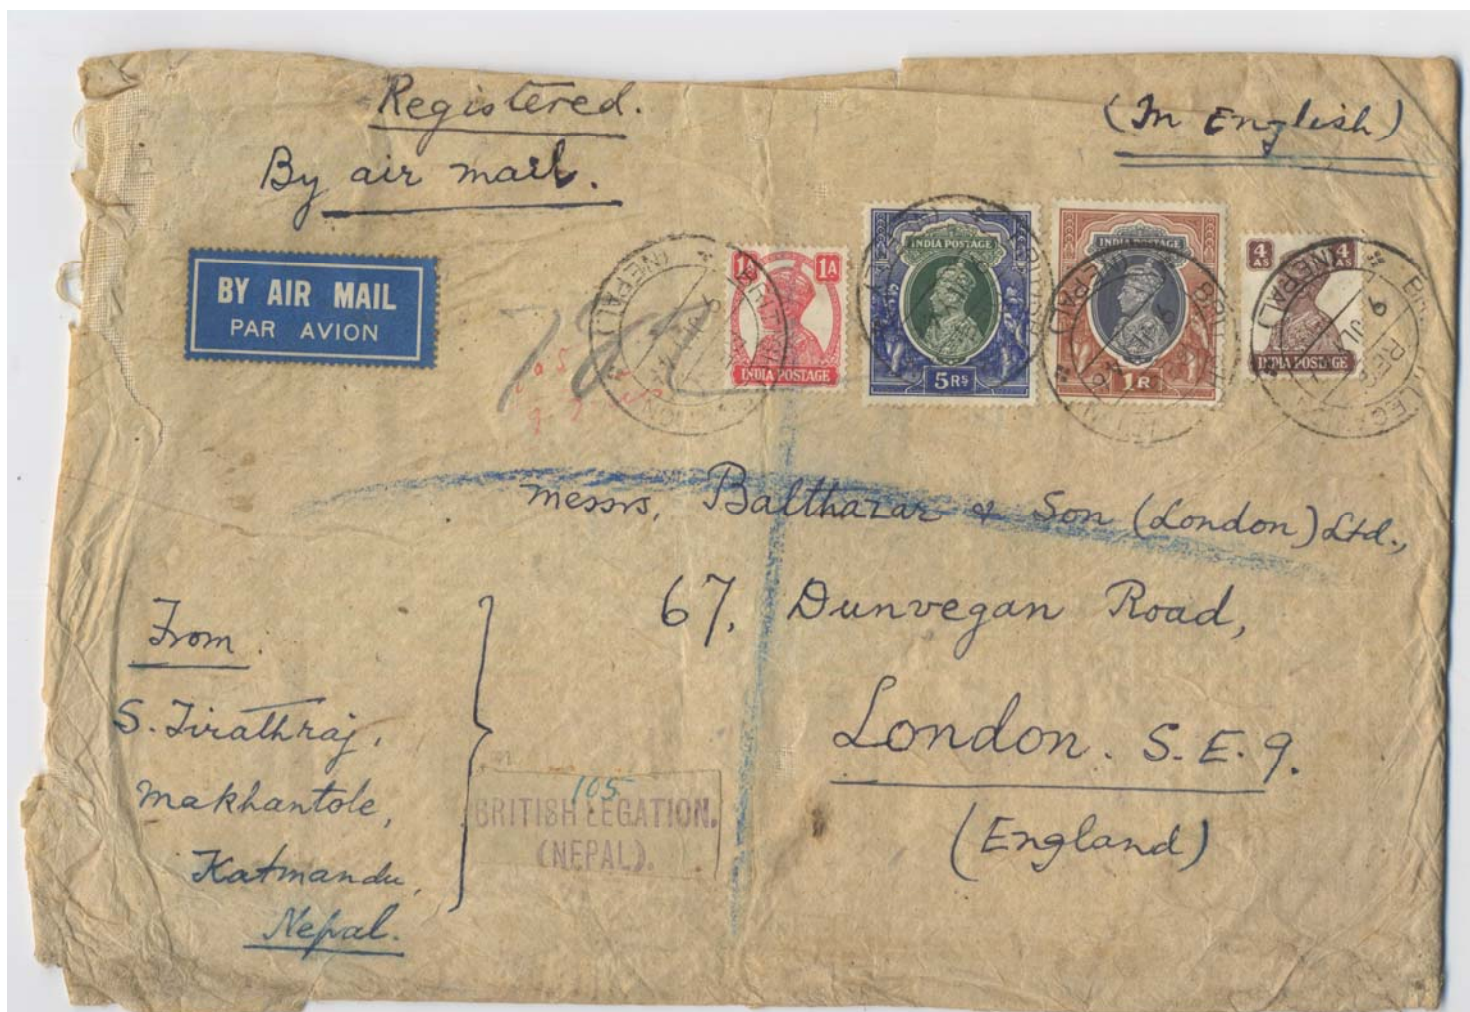 Registered.
(In English)
By air mail.
BY AIR MAIL
PAR AVION
1A 1A
INDIA POSTAGE
INDIA POSTAGE
5 RS
INDIA POSTAGE
1 R
4A 4A
INDIA POSTAGE
BRITISH LEGATION
(NEPAL)
Messrs, Balthazar & Son (London) Ltd.,
67, Dunvegan Road,
London. S.E.9.
(England)
From
S. Tirathraj,
Makhantole,
Katmandu,
Nepal.
105
BRITISH LEGATION.
(NEPAL).